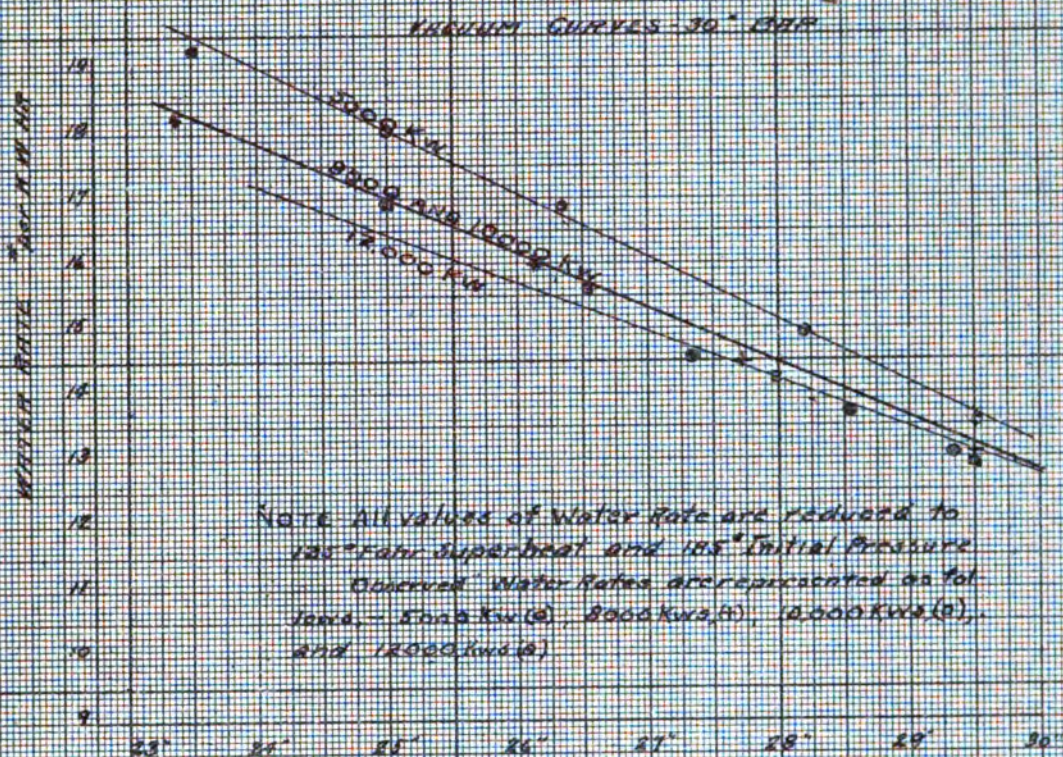 VACUUM CURVES - 30" BAR
WATER RATE # per K W HR
19
18
17
16
15
14
13
12
11
10
9
5000 KW
8000 AND 10000 KW
12,000 KW.
NOTE All values of Water Rate are reduced to
125° Fahr Superheat and 185# Initial Pressure
Observed Water Rates are represented as fol-
lows,- 5000 KW, 8000 KWs, 10,000 KWs,
and 12000 KWs
23"
24"
25"
26"
27"
28"
29"
30